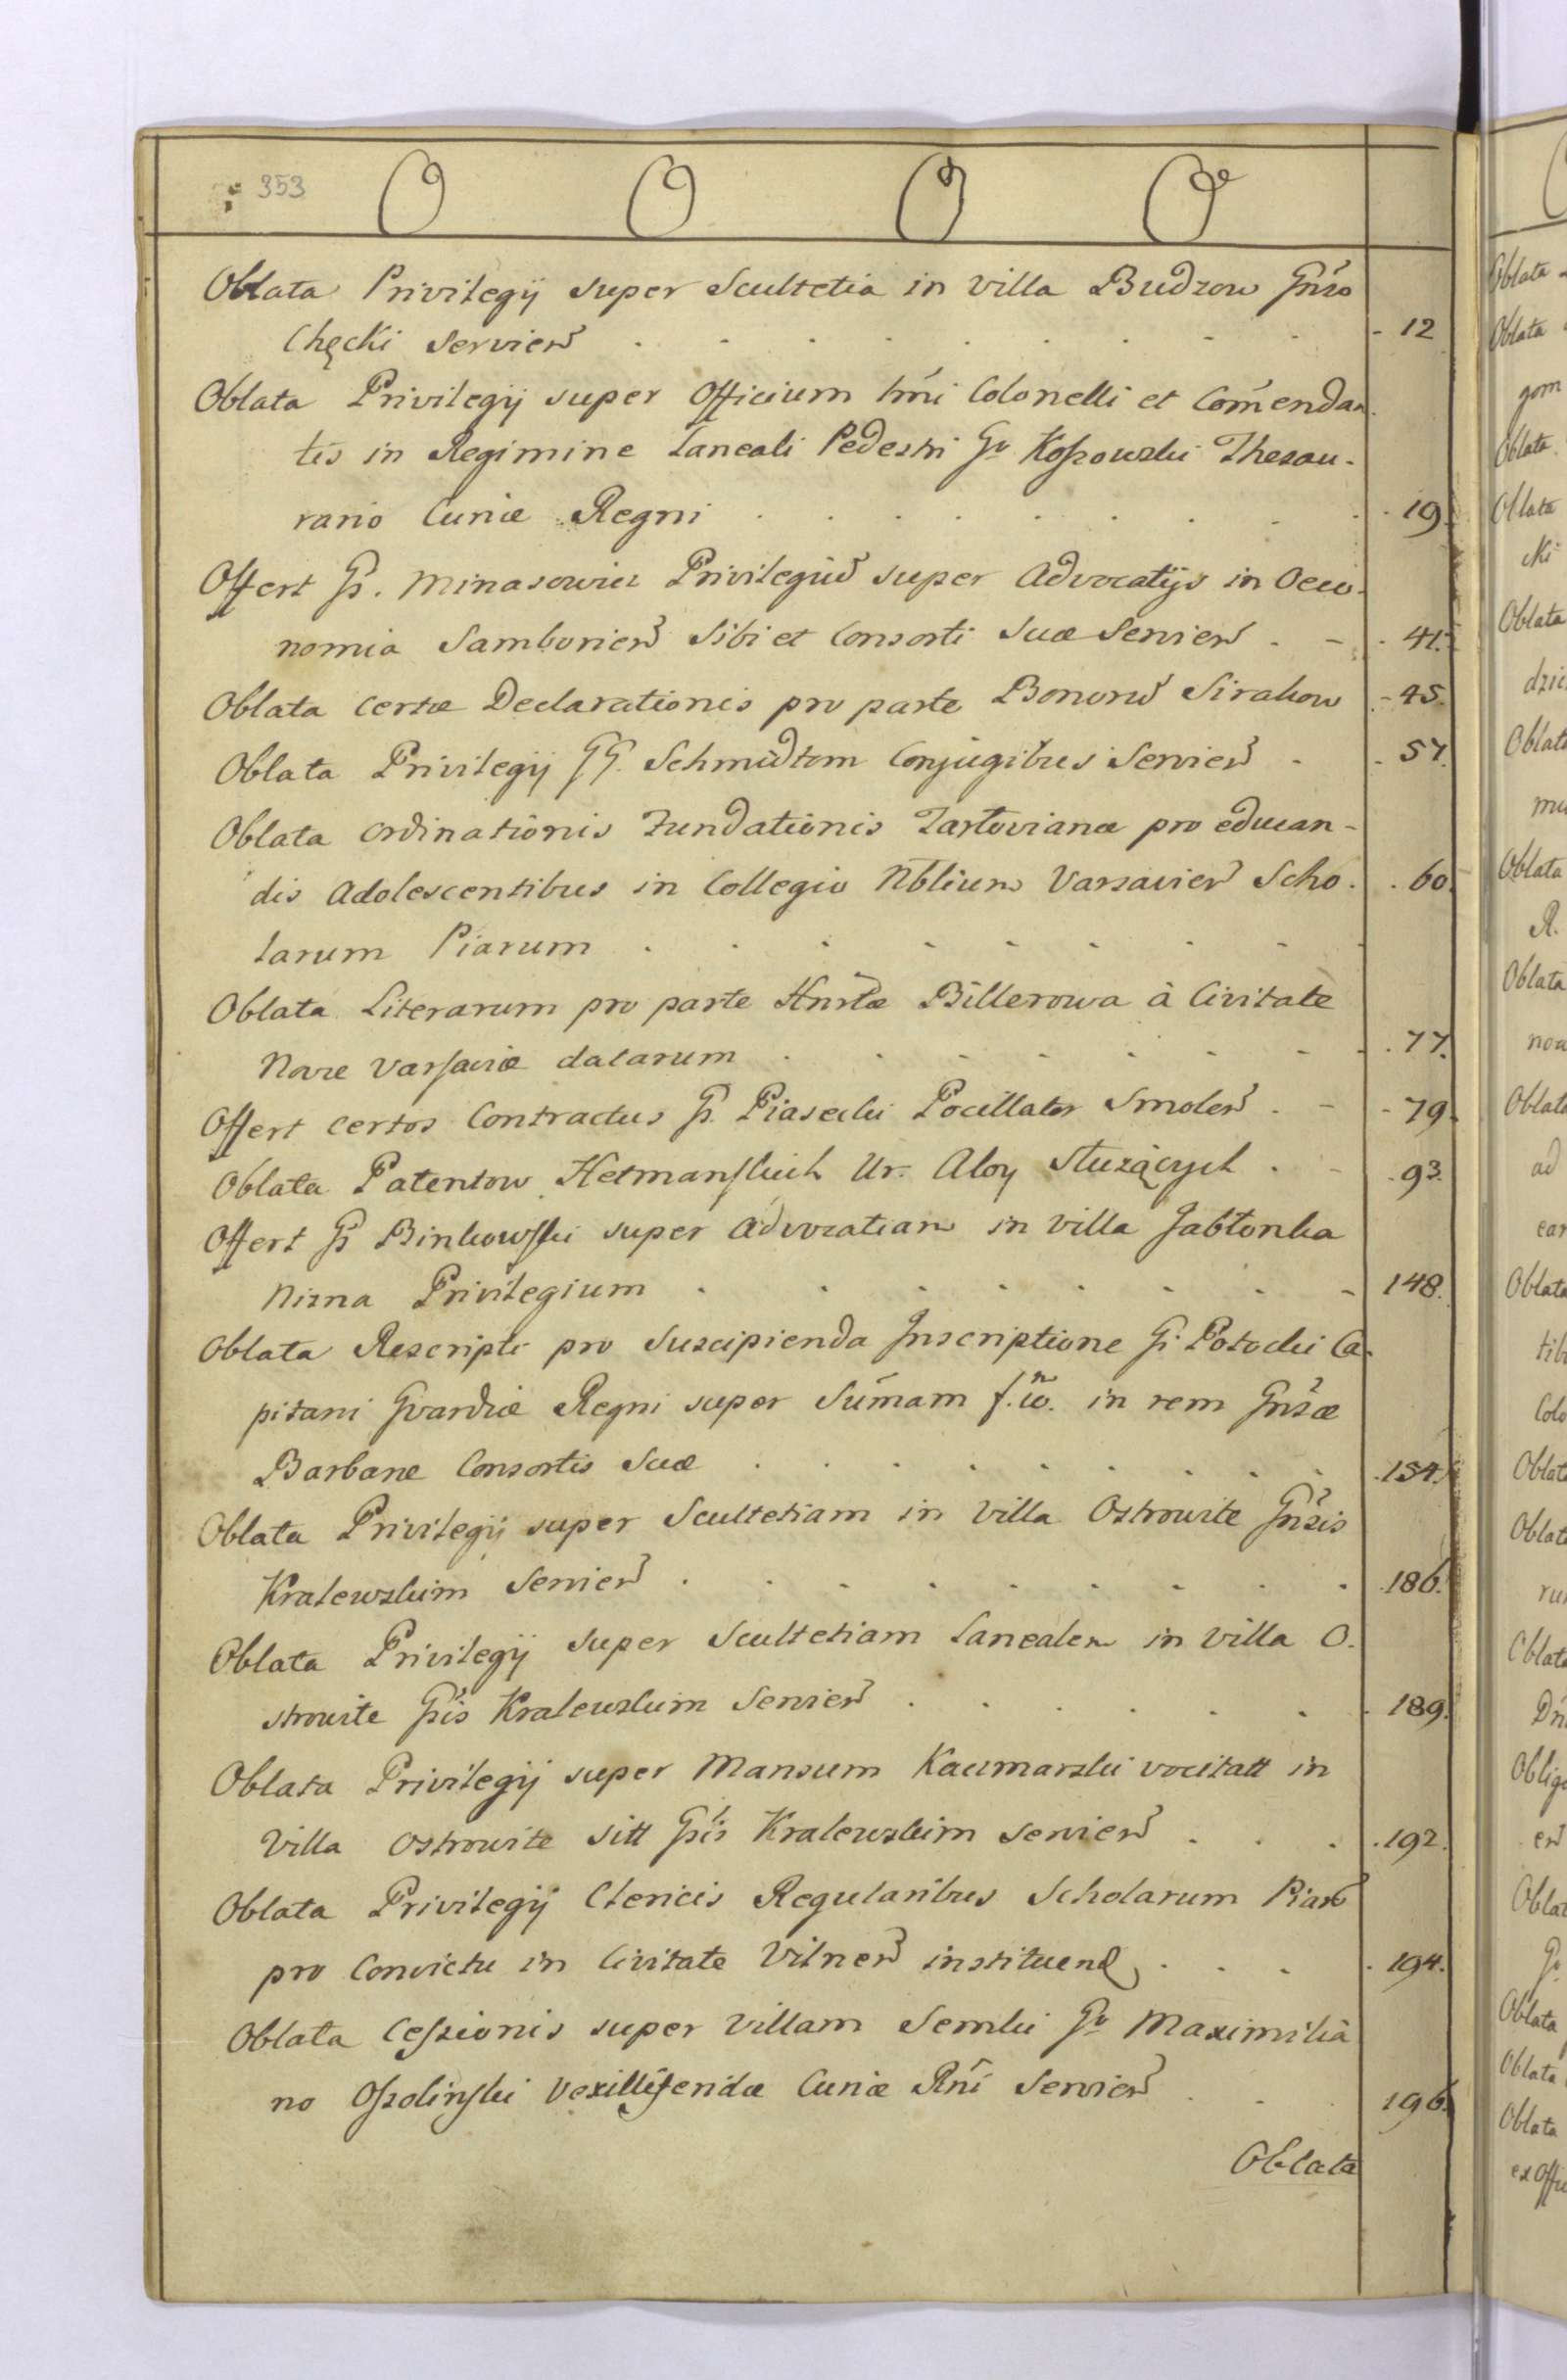 353 O O O O
Oblata Privilegij super Scultetia in Villa Budzow Gnso
Chęcki Servien - 12
Oblata Privilegij super Officium Lmi Colonelli et Comendan-
tis in Regimine Laneali Pedestri Go Kossowski Thesau-
rario Curiæ Regni 19.
Offert Gs. Minasowicz Privilegiu super Advocatijs in Oeco-
nomia Samborien Sibi et Consorti Suæ Servien - 41.
Oblata certæ Declarationis pro parte Bonoru Sirakow - 45.
Oblata Privilegij GG. Schmidtom Conjugibus Servien - 57.
Oblata Ordinationis Fundationis Zarłovianæ pro educan-
dis Adolescentibus in Collegio Nblium Varsavien Scho- 60.
larum Piarum
Oblata Literarum pro parte Hnstæ Billerowa à Civitate
Novæ Varsaviæ datarum - 77.
Offert certos Contractus Gs. Piasecki Pocillator Smolen - 79.
Oblata Patentow Hetmanskich Ur. Aloy służących - 93.
Offert Gs Binkowski super Advocatiam in Villa Jabłonka
Nizna Privilegium - 148.
Oblata Rescripti pro Suscipienda Inscriptione Gi Potocki Ca-
pitani Gvardiæ Regni super Sumam f. 10. in rem Gnsæ
Barbaræ Consortis Suæ 154.
Oblata Privilegij super Scultetiam in Villa Ostrowite Gnsis
Kralewskim Servien 186.
Oblata Privilegij super Scultetiam Lanealem in Villa O-
strowite Gsis Kralewskim Servien 189.
Oblata Privilegij super Mansum Kaczmarski vocitatt in
Villa Ostrowite sitt Gsis Kralewskim Servien 192.
Oblata Privilegij Clericis Regularibus Scholarum Piar
pro Convictu in Civitate Vilnen instituend 194.
Oblata Cessionis super Villam Semki Go Maximilia
no Ossolinski Vexillifendæ Curiæ Rni Servien 196.
Oblata